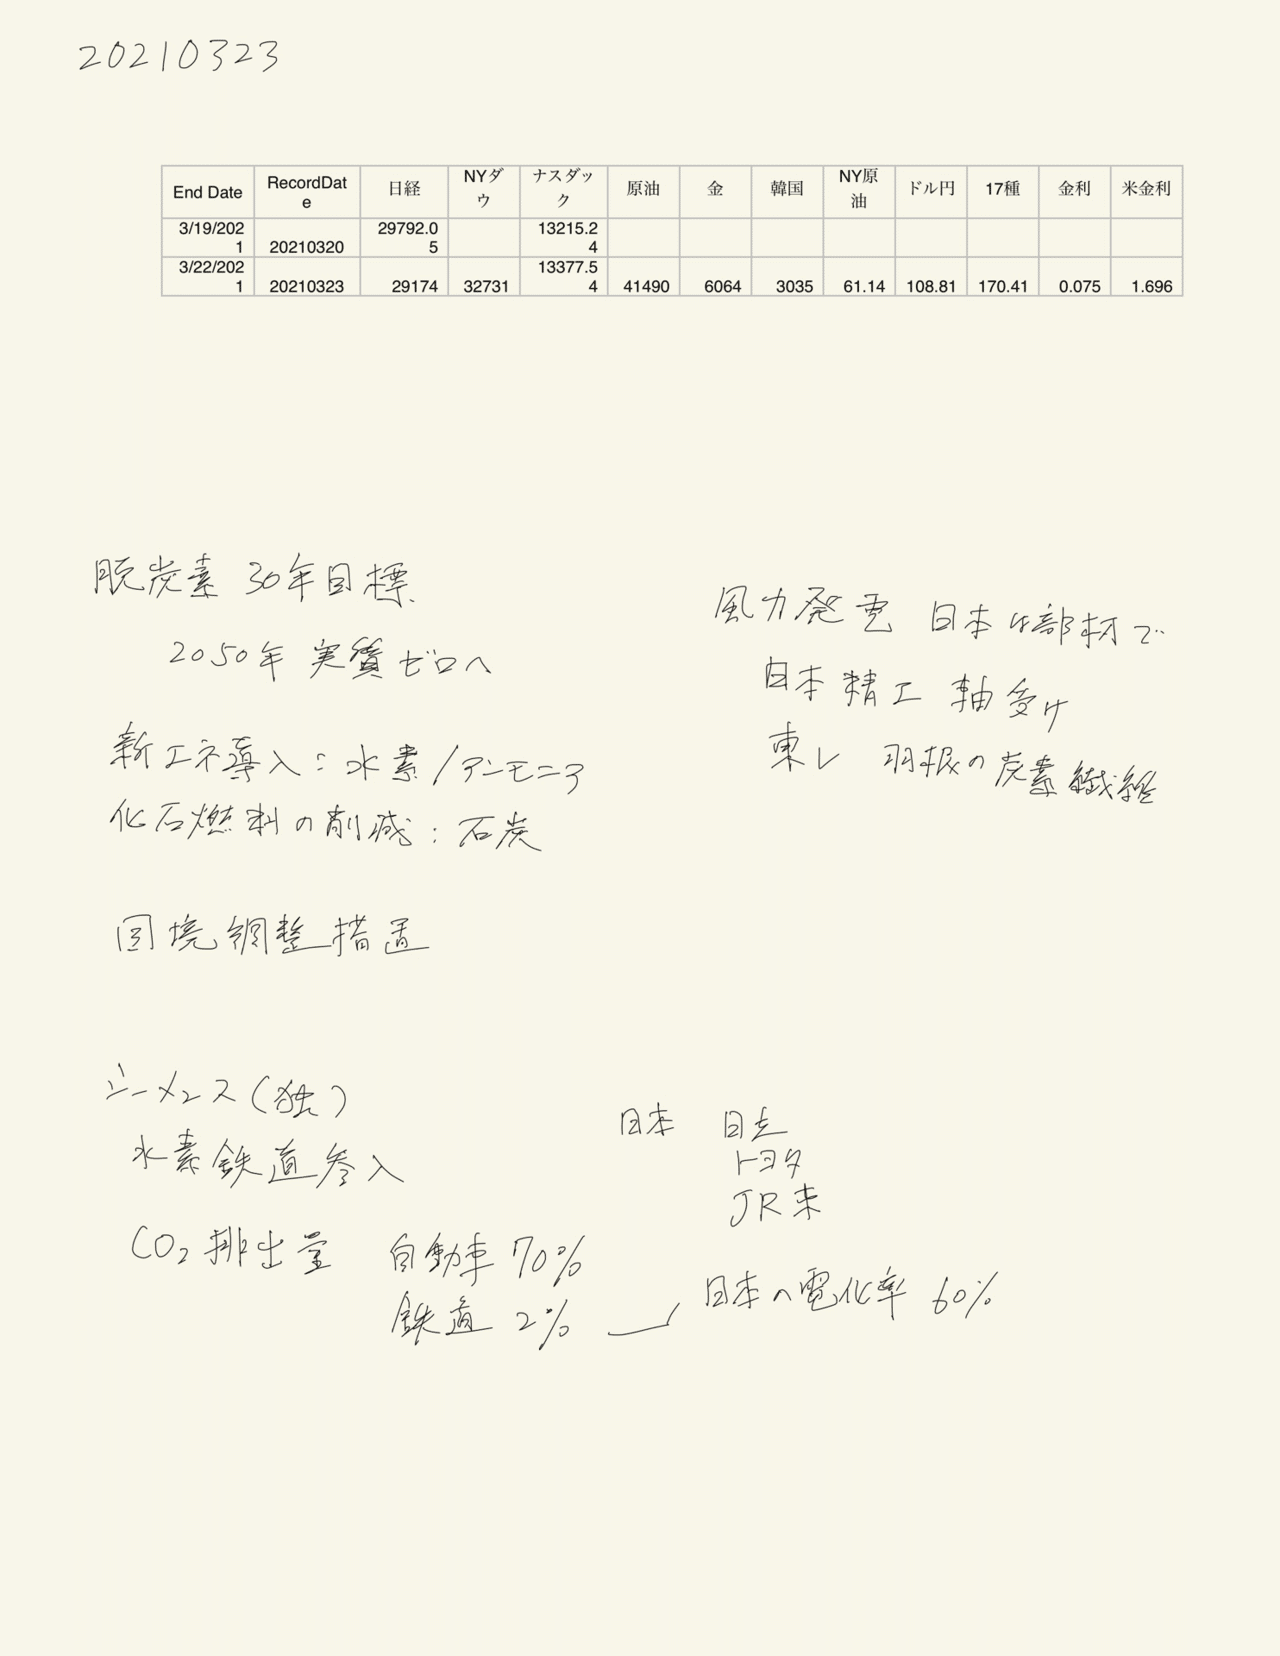 20210323
End Date RecordDate 日経 NYダウ ナスダック 原油 金 韓国 NY原油 ドル円 17種 金利 米金利
3/19/2021 20210320 29792.05 13215.24
3/22/2021 20210323 29174 32731 13377.54 41490 6064 3035 61.14 108.81 170.41 0.075 1.696
脱炭素 30年目標
2050年 実質ゼロへ
新エネ導入:水素/アンモニア
化石燃料の削減:石炭
国境調整措置
風力発電 日本は部材で
日本精工 軸受け
東レ 羽根の炭素繊維
シーメンス(独)
水素鉄道参入
日本 日立
トヨタ
JR東
CO₂排出量 自動車 70%
鉄道 2%
日本の電化率 60%